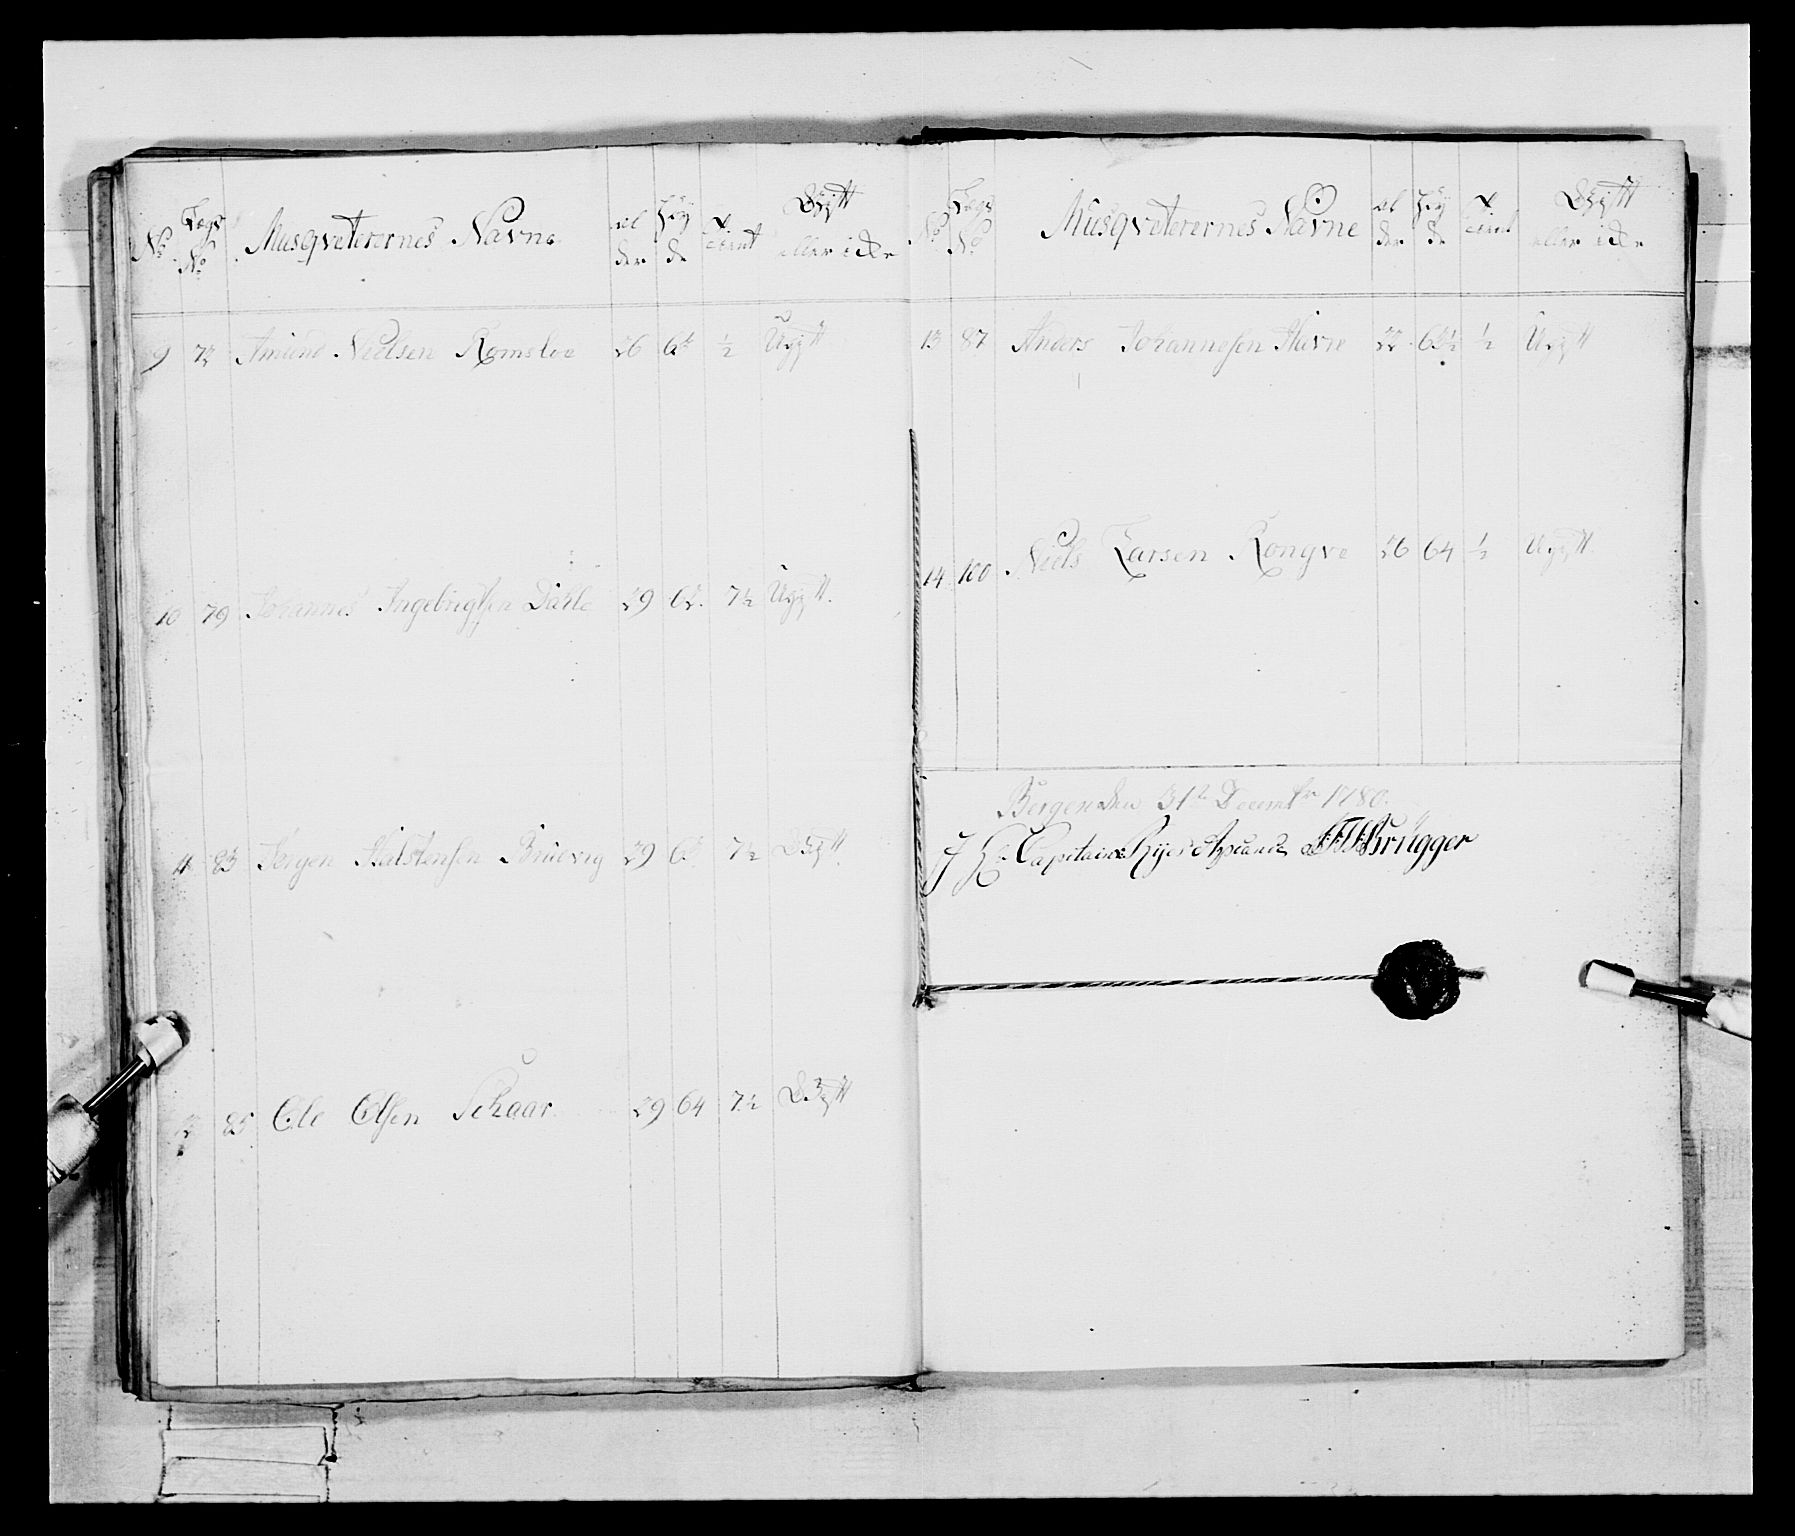 No Lægs No Musqveterernes Navne al der Høy de Tient Gift eller icke
9 72 Amund Nielsen Romsloe 26 62 ½ Ugift
10 79 Johannes Ingebrigtsen Dahle 29 62 7½ Ugift
11 83 Jørgen Halstensen Bruevig 29 63 7½ Gift
12 85 Ole Olsen Schaar 29 64 7½ Gift
No Lægs No Musqveterernes Navne al der Høy de Tient Gift eller icke
13 87 Anders Johannesen 22 63½ ½ Ugift
14 100 Niels Larsen Rongve 26 64 ½ Ugift
Bergen den 31te Decembr 1780.
Capitaine Brügger